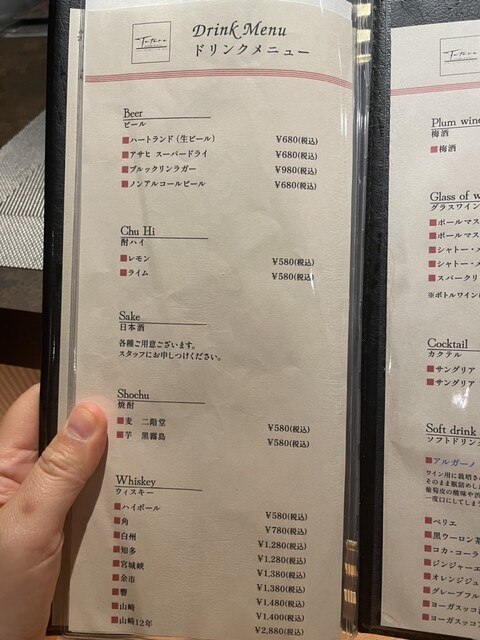 Drink Menu
ドリンクメニュー
Beer
ビール
ハートランド (生ビール) ¥680(税込)
アサヒ スーパードライ ¥680(税込)
ブルックリンラガー ¥980(税込)
ノンアルコールビール ¥680(税込)
Chu Hi
酎ハイ
レモン ¥580(税込)
ライム ¥580(税込)
Sake
日本酒
各種ご用意ございます。
スタッフにお申しつけください。
Shochu
焼酎
麦 二階堂 ¥580(税込)
芋 黒霧島 ¥580(税込)
Whiskey
ウィスキー
ハイボール ¥580(税込)
角 ¥780(税込)
白州 ¥1,280(税込)
知多 ¥1,280(税込)
宮城峡 ¥1,380(税込)
余市 ¥1,380(税込)
響 ¥1,480(税込)
山崎 ¥1,400(税込)
山崎12年 ¥2,880(税込)
Plum wine
梅酒
梅酒
Glass of w
グラスワイン
ポールマス
ポールマス
シャトー・メ
シャトー・メ
スパークリ
※ボトルワイン
Cocktail
カクテル
サングリア
サングリア
Soft drink
ソフトドリンク
アルガーノ
ワイン用に栽培さ
そのまま瓶詰めし
葡萄皮の酸味や渋
一度口にしてしまう
ペリエ
黒ウーロン茶
コカ・コーラ
ジンジャーエ
オレンジジュ
グレープフル
ヨーガスッコ
ヨーガスッコ